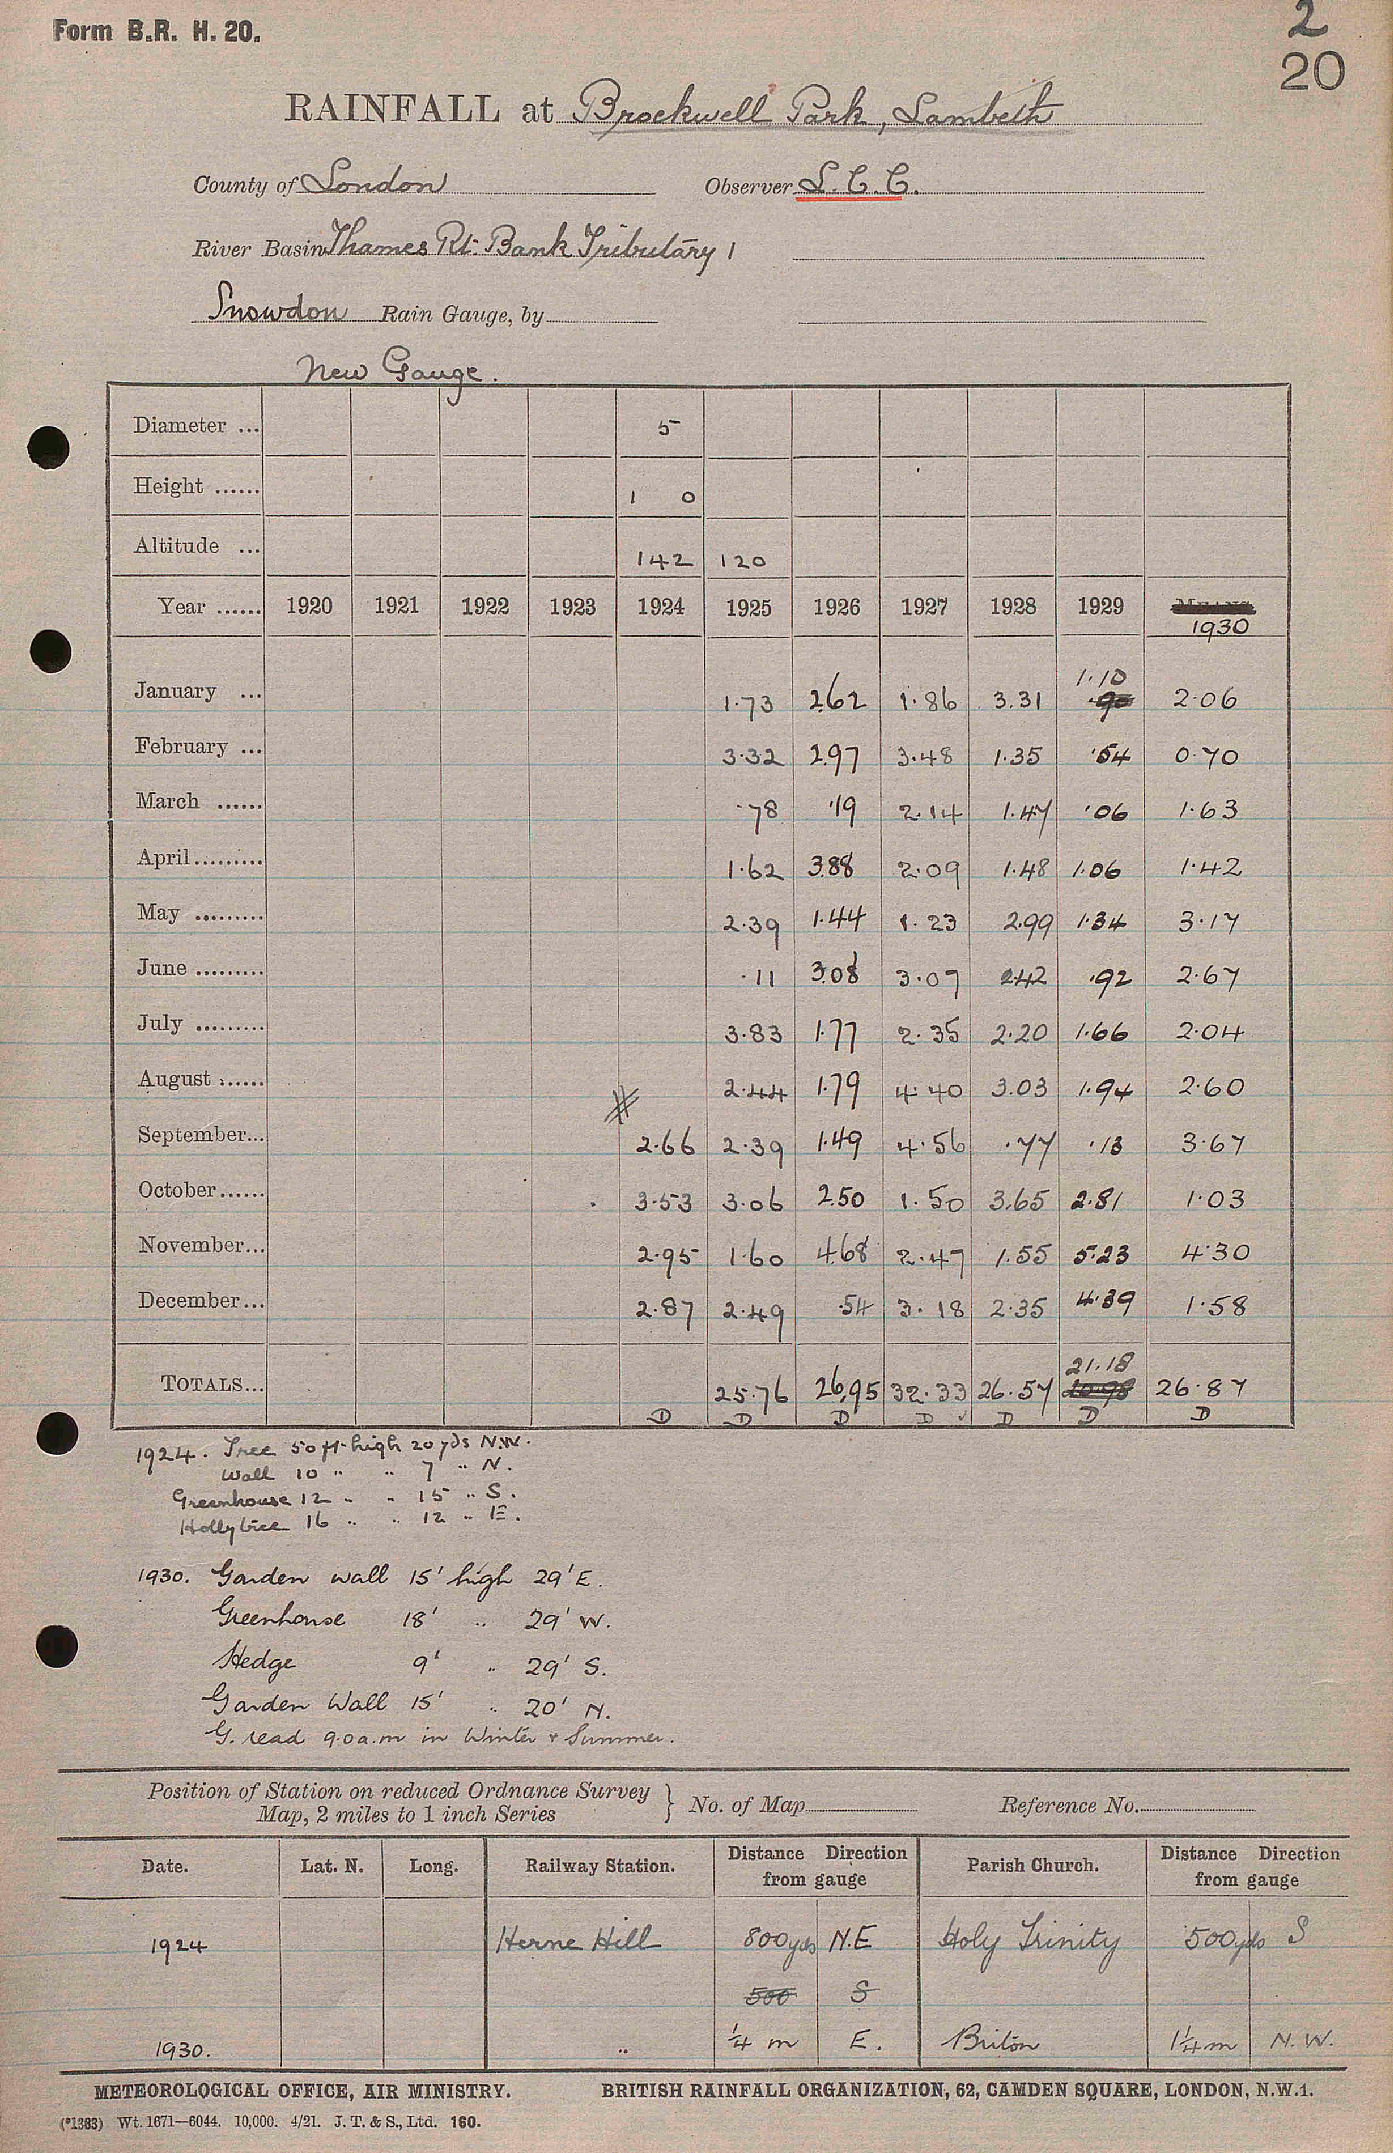 Form B.R. H. 20.
2
20
RAINFALL at Brockwell Park, Lambeth
County of London Observer L.C.C.
River Basin Thames Rt. Bank Tributary 1
Snowdon Rain Gauge, by
New Gauge.
Diameter ... 5
Height ...... 1 0
Altitude ... 142 120
Year ...... 1920 1921 1922 1923 1924 1925 1926 1927 1928 1929 MEANS 1930
January ... 1.73 2.62 1.86 3.31 1.10 .90 2.06
February ... 3.32 2.97 3.48 1.35 .54 0.70
March ...... .78 .19 2.14 1.47 .06 1.63
April ......... 1.62 3.88 2.09 1.48 1.06 1.42
May ......... 2.39 1.44 1.23 2.99 1.34 3.17
June ......... .11 3.08 3.07 2.42 .92 2.67
July ......... 3.83 1.77 2.35 2.20 1.66 2.04
August ...... 2.44 1.79 4.40 3.03 1.94 2.60
September... 2.66 2.39 1.49 4.56 .77 .13 3.67
October ...... 3.53 3.06 2.50 1.50 3.65 2.81 1.03
November... 2.95 1.60 4.68 2.47 1.55 5.23 4.30
December... 2.87 2.49 .54 3.18 2.35 4.39 1.58
TOTALS... 25.76 26.95 32.33 26.57 21.18 20.98 26.87
D D D D ✓ D D D
1924. Tree 50 ft. high 20 yds N.W.
Wall 10 " " 7 " N.
Greenhouse 12 " " 15 " S.
Holly tree 16 " " 12 " E.
1930. Garden wall 15' high 29' E.
Greenhouse 18' " 29' W.
Hedge 9' " 29' S.
Garden Wall 15' " 20' N.
G. read 9.0 a.m in Winter & Summer.
Position of Station on reduced Ordnance Survey
Map, 2 miles to 1 inch Series } No. of Map Reference No.
Date. Lat. N. Long. Railway Station. Distance Direction from gauge Parish Church. Distance Direction from gauge
1924 Herne Hill 800 yds N.E Holy Trinity 500 yds S
500 S
1930. " 1/4 m E. Brixton 1 1/4 m N.W.
METEOROLOGICAL OFFICE, AIR MINISTRY. BRITISH RAINFALL ORGANIZATION, 62, CAMDEN SQUARE, LONDON, N.W.1.
(*1383) Wt. 1671—6044. 10,000. 4/21. J. T. & S., Ltd. 160.